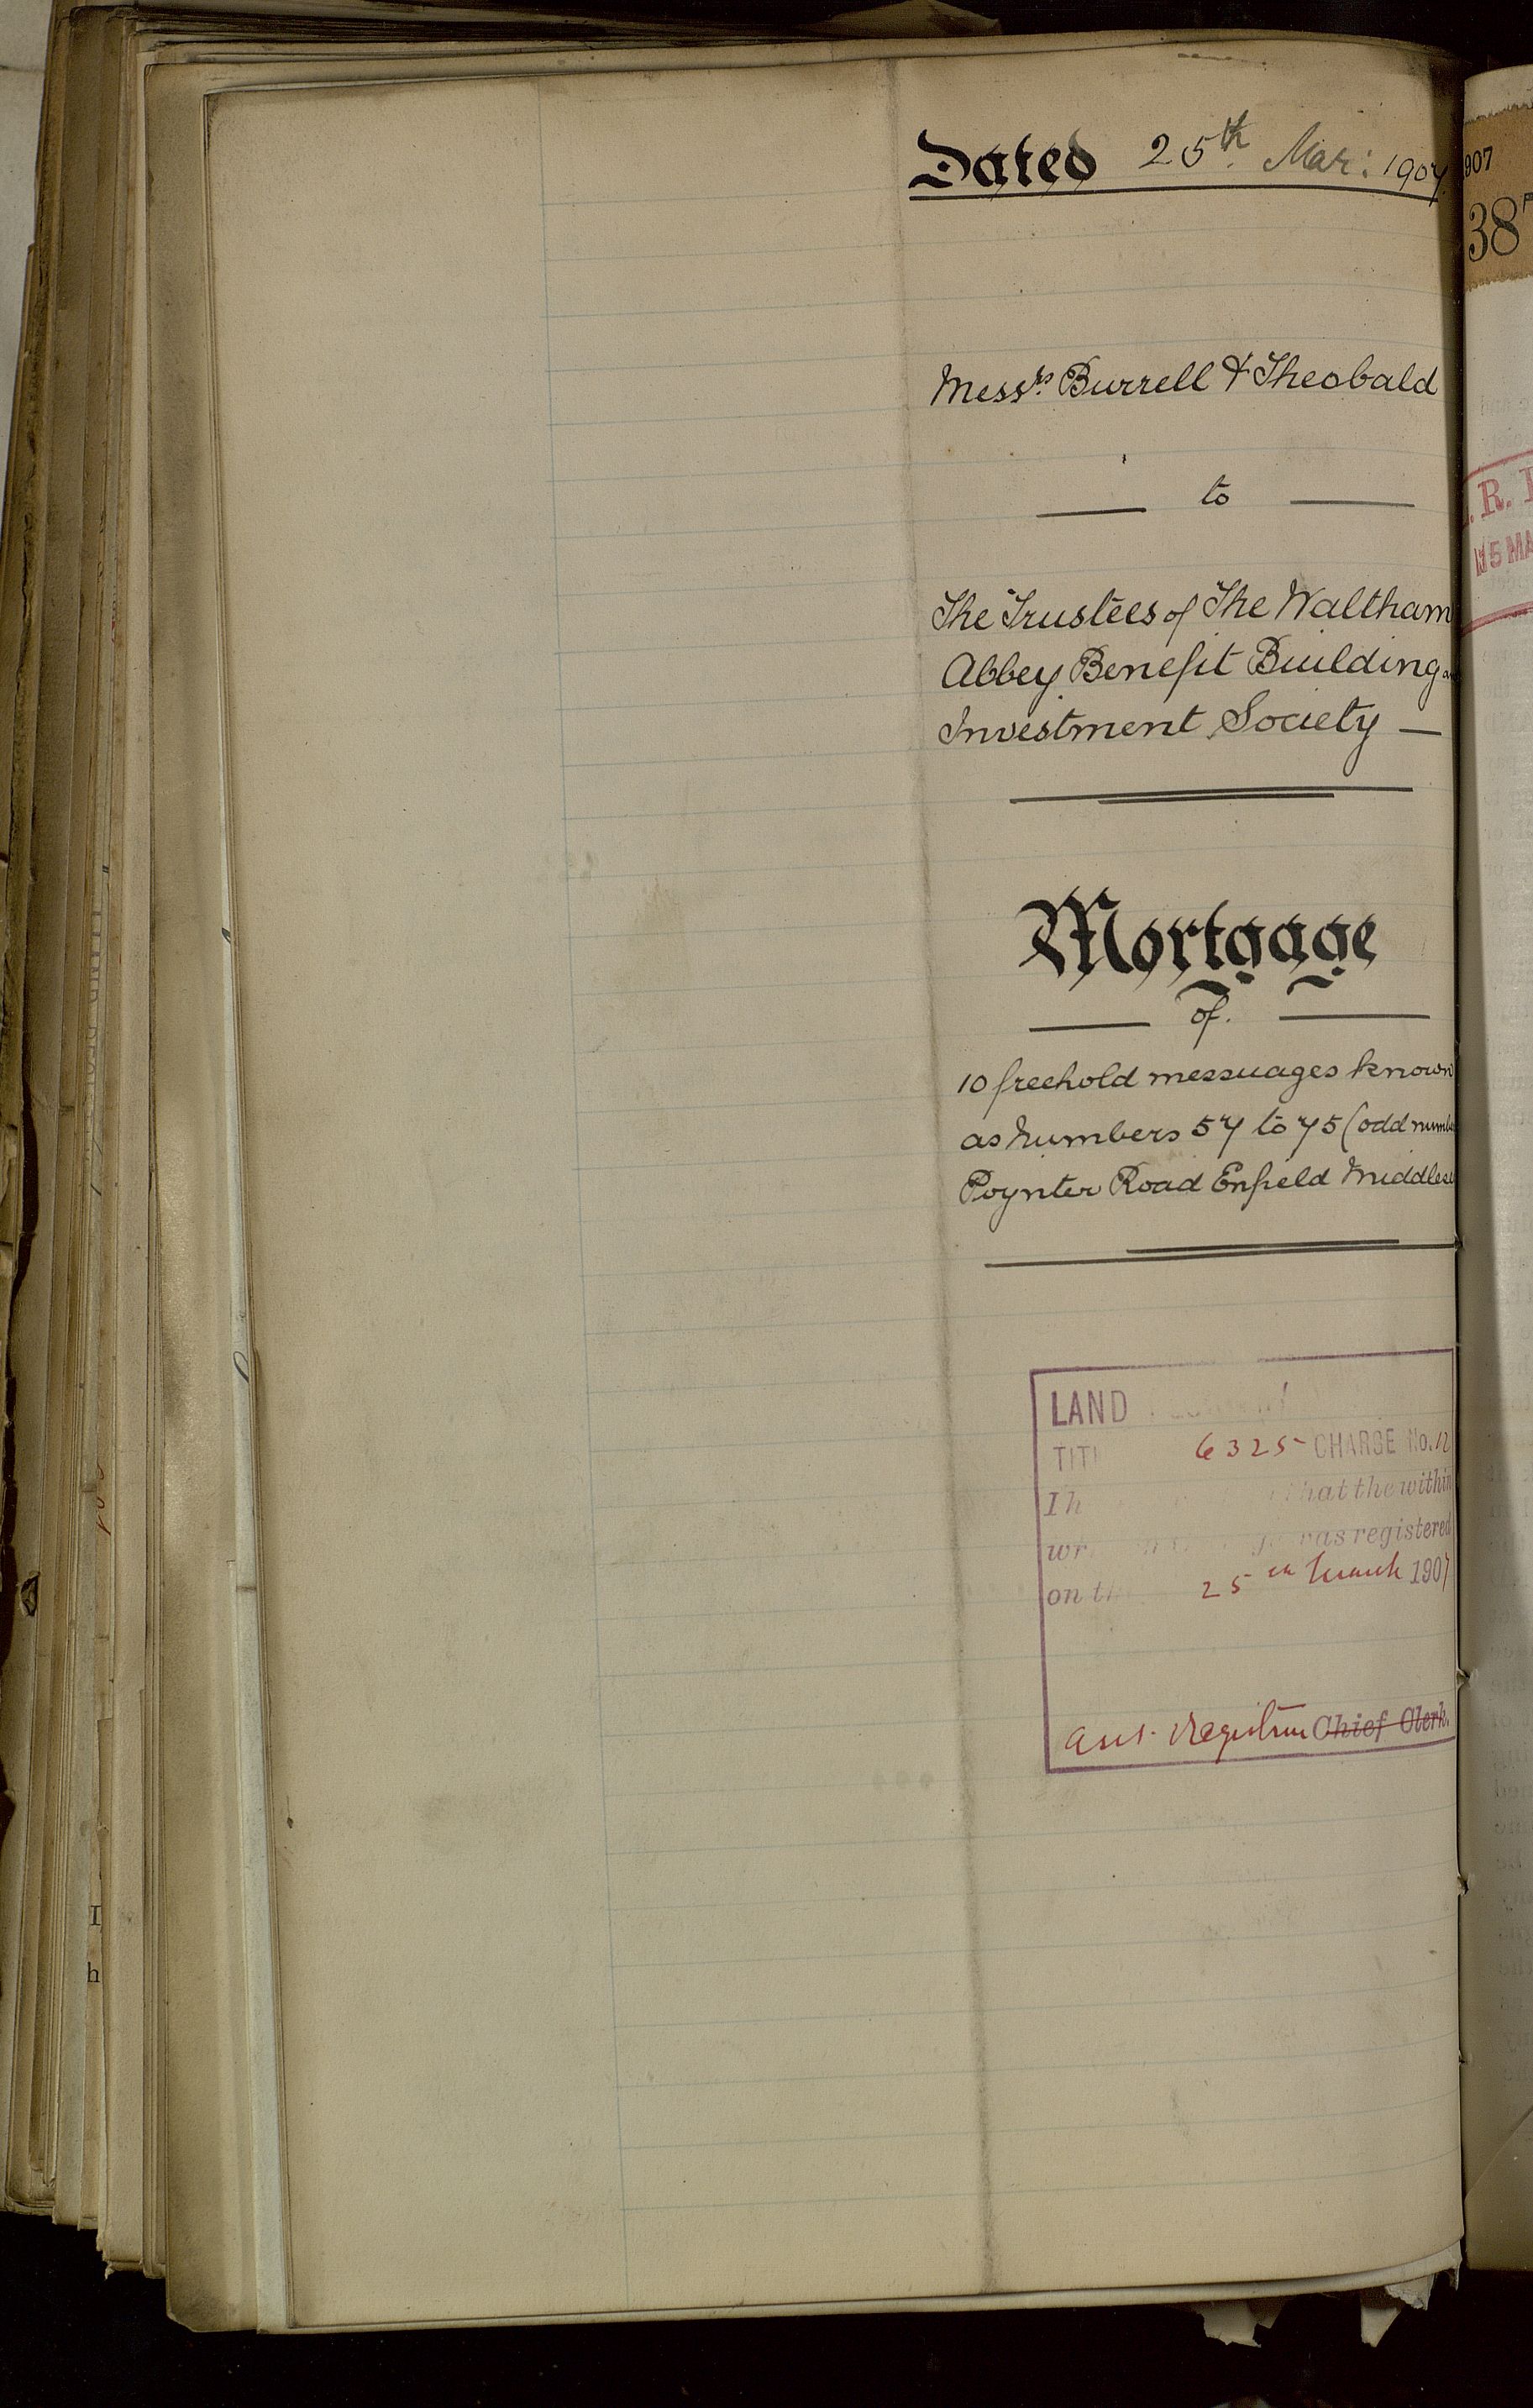 Dated 25th Mar: 1907
Messrs Burrell & Theobald
to
The Trustees of The Waltham
Abbey Benefit Building
Investment Society
Mortgage
of
10 freehold messuages known
as Numbers 57 to 75 (odd
Poynter Road Enfield
LAND
6325 CHARGE No. 12
I h that the within
was registered
on 25th March 1907
Asst. Registrar Chief Clerk.
907
38
R.